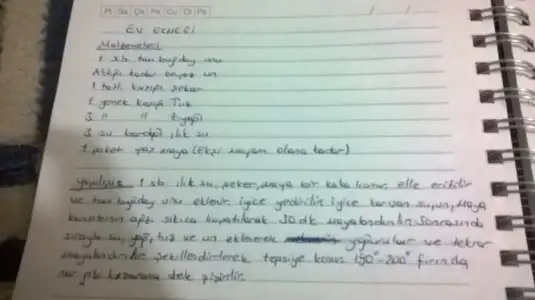 Pt Sa Ça Pe Cu Ct Pz
EV EKMEĞİ
Malzemeleri
1 s.b. tam buğday unu
Aldığı kadar beyaz un
1 tatlı kaşığı şeker
1 yemek kaşığı Tuz
3 " " Z.yağı
3 su bardağı ılık su
1 paket yaş maya (Ekşi mayam olana kadar)
Yapılışı: 1 sb. ılık su, şeker, maya bir kaba konur, elle eritilir
ve tam buğday unu eklenir, iyice yedirilir iyice karışan su, un, maya
karışımının ağzı sıkıca kapatılarak 30 dk mayalandırılır. Sonrasında
sırayla su, yağ, tuz ve un eklenerek yoğurulur ve tekrar
mayalandırılır şekillendirilerek tepsiye konur 190°-200° fırında
dek pişirilir.